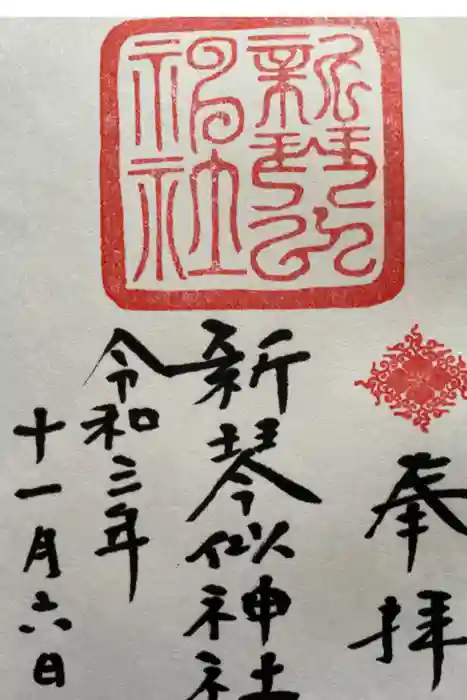 奉拝
新琴似神社
令和三年
十一月六日
新琴似
神社